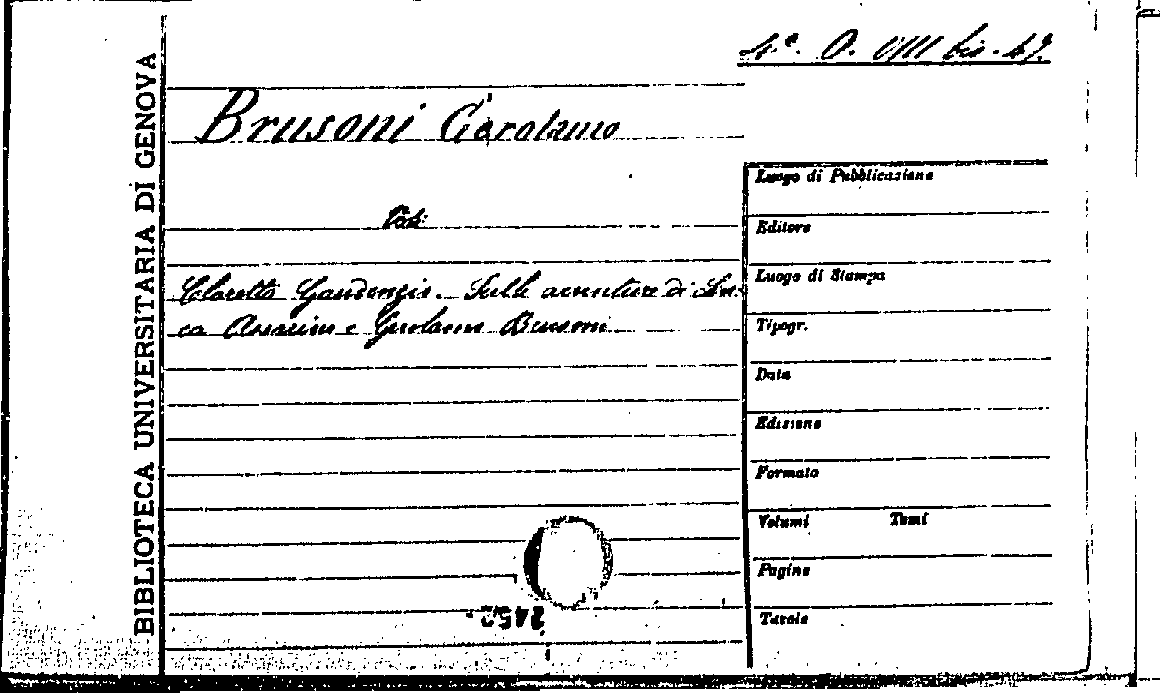 4°. O. VIII bis. 49.
Brusoni Girolamo
BIBLIOTECA UNIVERSITARIA DI GENOVA
Claretta Gaudenzio. Sulle avventure di Lu-
ca Assarino e Girolamo Brusoni
Luogo di Pubblicazione
Editore
Luogo di Stampa
Tipogr.
Data
Edizione
Formato
Volumi Tomi
Pagine
Tavole